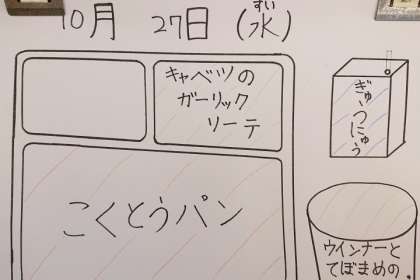 10月 27日 (水)
すい
キャベツの
ガーリック
ソーテ
ぎゅうにゅう
こくとうパン
ウインナーと
てぼまめの